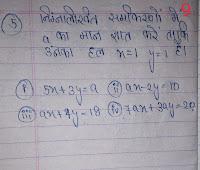 ⑤ निम्नलिखित समीकरणों में
a का मान ज्ञात करे ताकि
उनका हल x=1 y=1 है।
i 5x+3y=a ii ax-2y=10
iii ax+4y=18 iv 7ax+3ay=20